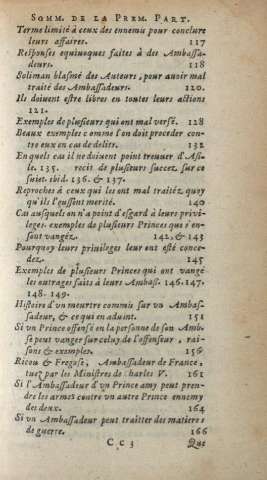 SOMM. DE LA PREM. PART.
Terme limité à ceux des ennemis pour conclure
leurs affaires. 117
Responses equiuoques faites à des Ambassa-
deurs. 118
Soliman blasmé des Auteurs, pour auoir mal
traité des Ambassadeurs. 120.
Ils doiuent estre libres en toutes leurs actions
121.
Exemples de plusieurs qui ont mal versé. 128
Beaux exemples comme l'on doit proceder con-
tre eux en cas de delits. 132
En quels cas il ne doiuent point treuuer d'Asi-
le. 135. recit de plusieurs succez sur ce
suiet. ibid. 136. & 137.
Reproches à ceux qui les ont mal traitéz quoy
qu'ils l'eussent merité. 140
Cas ausquels on n'a point d'esgard à leurs priui-
leges. exemples de plusieurs Princes qui s'en-
sont vangéz. 141, & 143
Pourquoy leurs priuileges leur ont esté conce-
dez. 145
Exemples de plusieurs Princes qui ont vangé
les outrages faits à leurs Ambass. 146. 147.
148. 149.
Histoire d'vn meurtre commis sur vn Ambas-
sadeur, & ce qui en aduint. 151
Si vn Prince offensé en la personne de son Amb.
se peut vanger sur celuy de l'offenseur, rai-
sons & exemples. 156
Ricou & Fregose, Ambassadeur de France,
tuez par les Ministres de Charles V. 161
Si l'Ambassadeur d'vn Prince amy peut pren-
dre les armes contre vn autre Prince ennemy
des deux. 164
Si vn Ambassadeur peut traitter des matieres
de guerre. 166
Cc3 Que